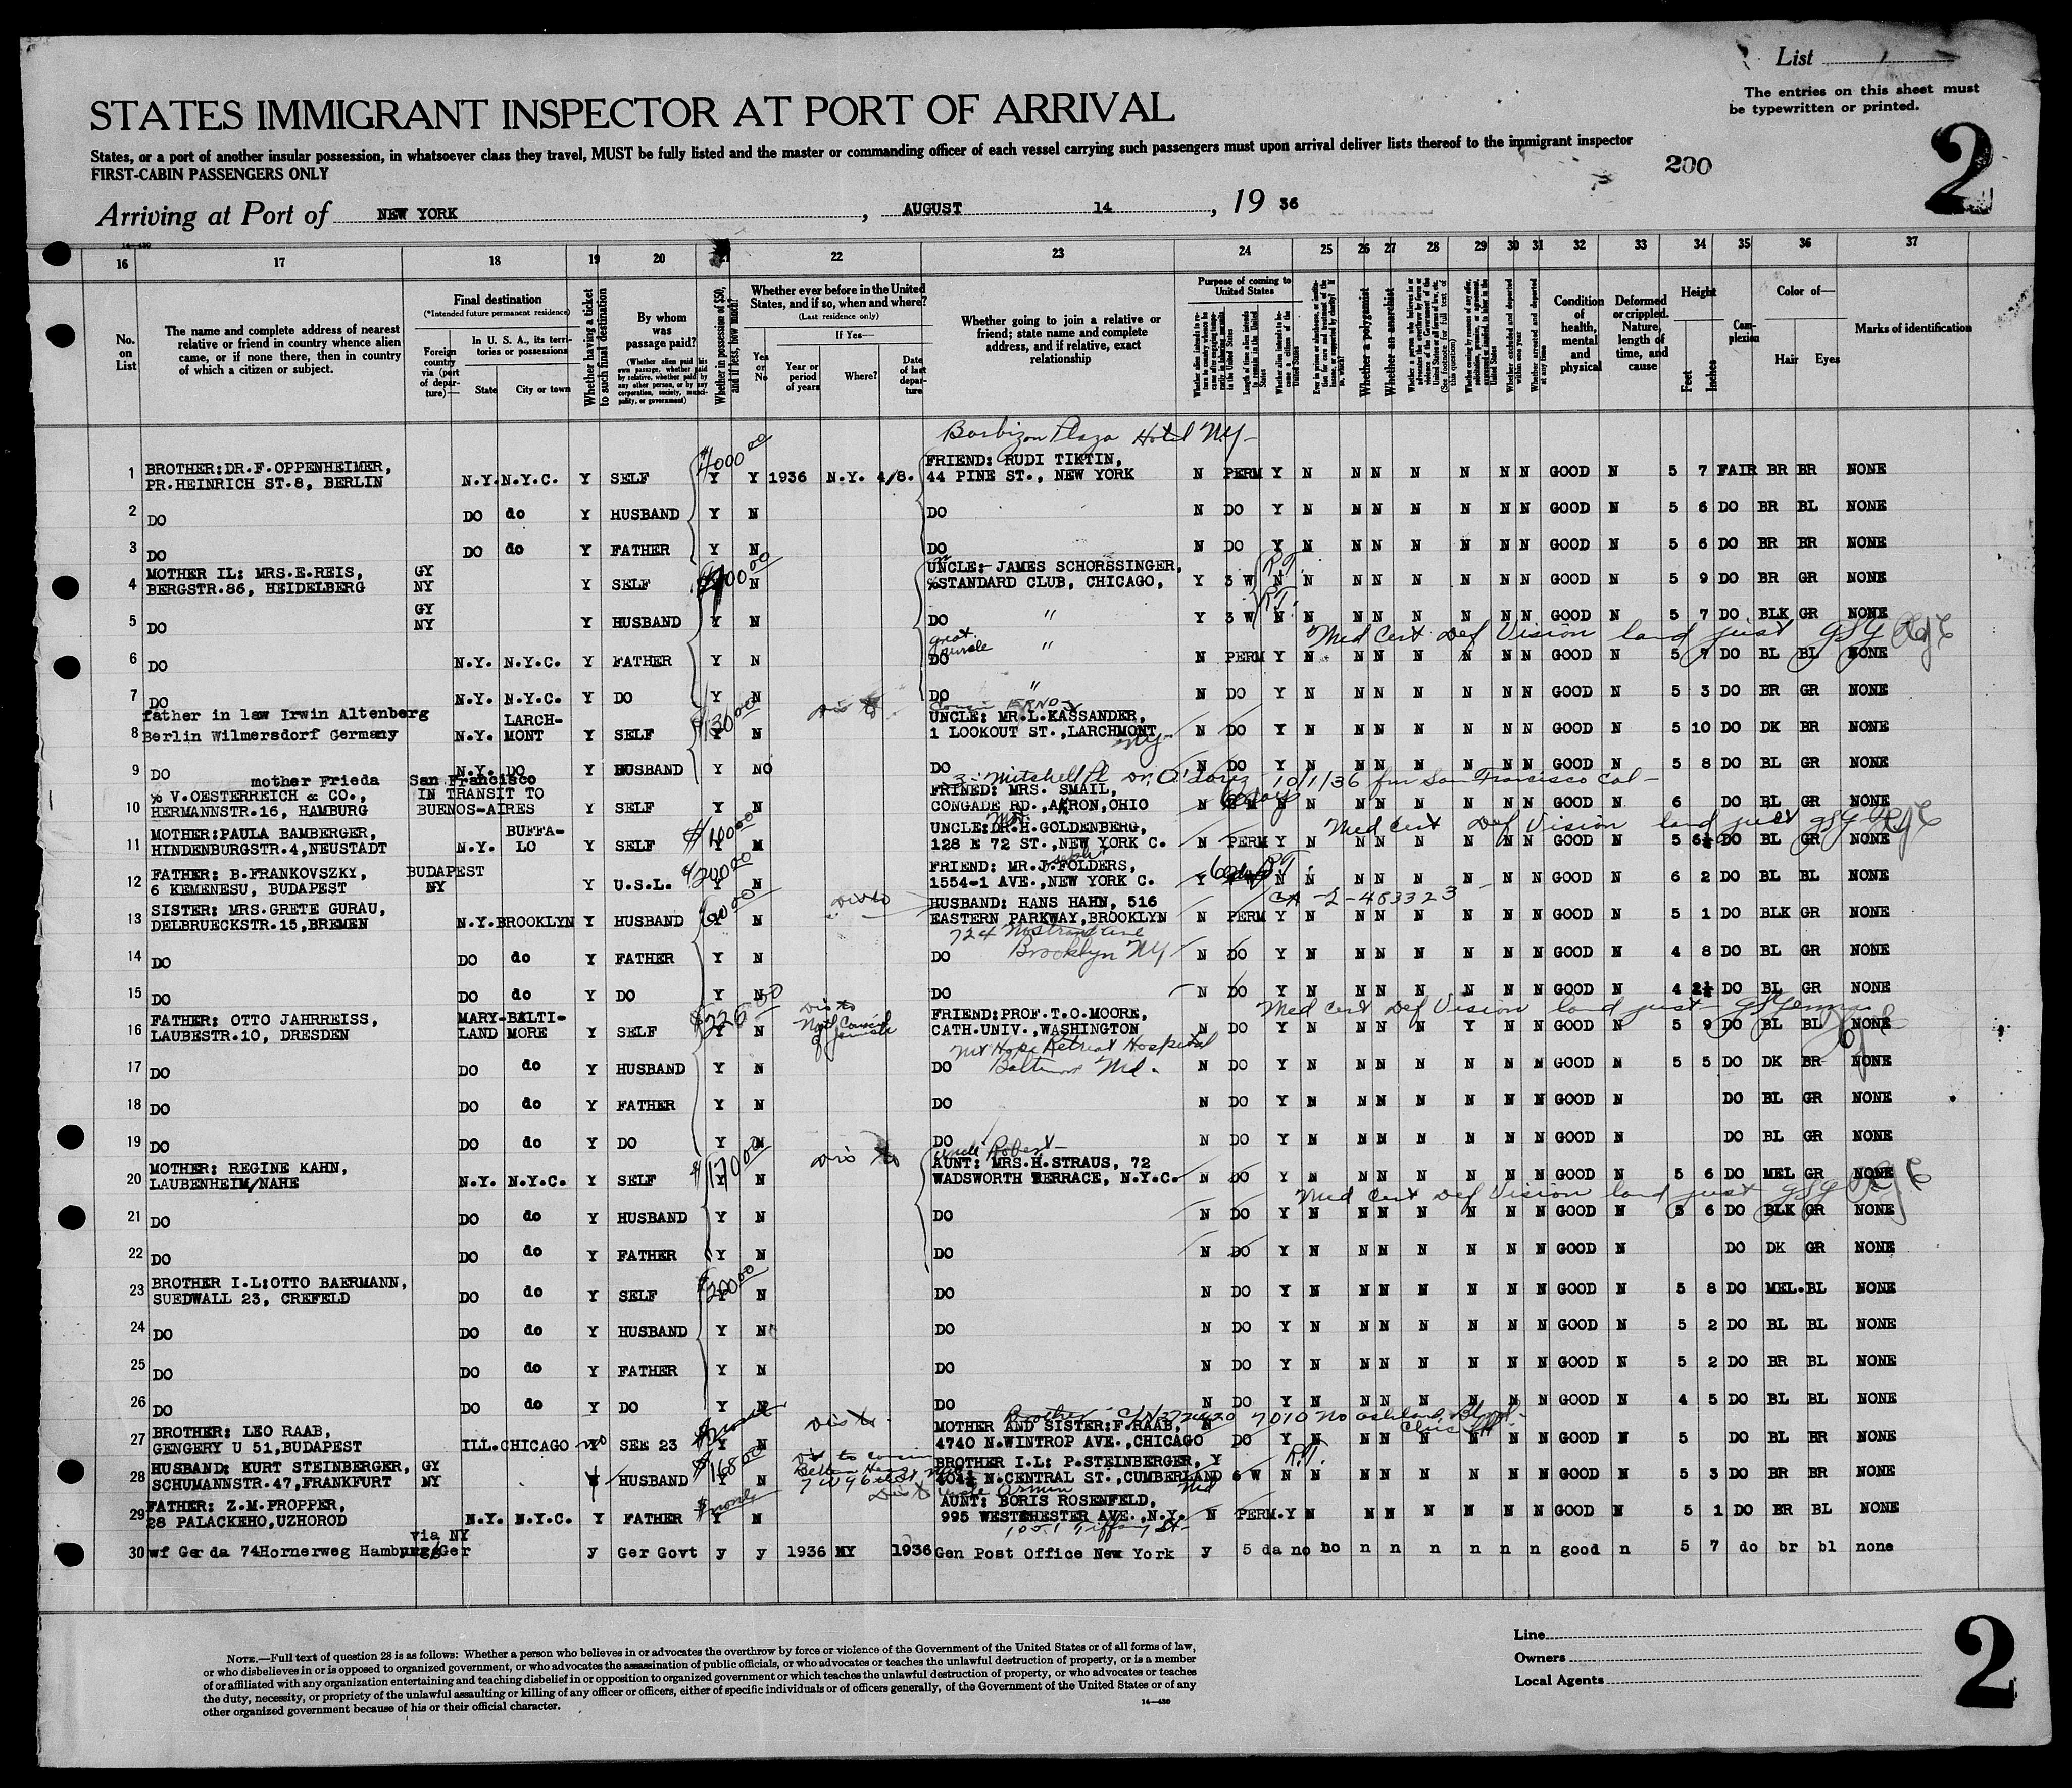 List
The entries on this sheet must
be typewritten or printed.
STATES IMMIGRANT INSPECTOR AT PORT OF ARRIVAL
2
States, or a port of another insular possession, in whatsoever class they travel, MUST be fully listed and the master or commanding officer of each vessel carrying such passengers must upon arrival deliver lists thereof to the immigrant inspector
200
FIRST-CABIN PASSENGERS ONLY
Arriving at Port of NEW YORK, AUGUST 14, 19 36
14-430
16 17 18 19 20 21 22 23 24 25 26 27 28 29 30 31 32 33 34 35 36 37
No. on List
The name and complete address of nearest relative or friend in country whence alien came, or if none there, then in country of which a citizen or subject.
Final destination
(*Intended future permanent residence)
Foreign country via (port of departure)—
In U. S. A., its territories or possessions
State
City or town
Whether having a ticket to such final destination
By whom was passage paid?
(Whether alien paid his own passage, whether paid by relative, whether paid by any other person, or by any corporation, society, municipality, or government)
Whether in possession of $50, and if less, how much?
Whether ever before in the United States, and if so, when and where?
(Last residence only)
Yes or No
If Yes—
Year or period of years
Where?
Date of last departure
Whether going to join a relative or friend; state name and complete address, and if relative, exact relationship
Purpose of coming to United States
Whether a polygamist
Whether an anarchist
Condition of health, mental and physical
Deformed or crippled. Nature, length of time, and cause
Height
Feet
Inches
Complexion
Color of—
Hair
Eyes
Marks of identification
Barbizon Plaza Hotel NY
1 BROTHER:DR.F.OPPENHEIMER, PR.HEINRICH ST.8, BERLIN N.Y. N.Y.C. Y SELF $4000.00 Y Y 1936 N.Y. 4/8. FRIEND: RUDI TIKTIN, 44 PINE ST., NEW YORK N PERM Y N N N N N N N GOOD N 5 7 FAIR BR BR NONE
2 DO DO do Y HUSBAND Y N DO N DO Y N N N N N N N GOOD N 5 6 DO BR BL NONE
3 DO DO do Y FATHER Y N DO N DO Y N N N N N N N GOOD N 5 6 DO BR BR NONE
4 MOTHER IL: MRS.E.REIS, BERGSTR.86, HEIDELBERG GY NY Y SELF N UNCLE: JAMES SCHORSSINGER, %STANDARD CLUB, CHICAGO, Y 3 W N N N N N N N N GOOD N 5 9 DO BR GR NONE
R.T.
5 DO GY NY Y HUSBAND Y N DO " Y 3 W N N N N N N N N GOOD N 5 7 DO BLK GR NONE
R.T.
Med Cert Def Vision land just
6 DO N.Y. N.Y.C. Y FATHER Y N great uncle DO " N PERM Y N N N N N N N GOOD N 5 7 DO BL BL NONE
7 DO N.Y. N.Y.C. Y DO Y N DO " N DO Y N N N N N N N GOOD N 5 3 DO BR GR NONE
8 father in law Irwin Altenberg Berlin Wilmersdorf Germany N.Y. LARCH-MONT Y SELF $130.00 Y N Cousin ERNO UNCLE: MR.L.KASSANDER, 1 LOOKOUT ST.,LARCHMONT NY N DO Y N N N N N N N GOOD N 5 10 DO DK BR NONE
9 DO N.Y. DO Y HUSBAND Y NO DO N DO Y N N N N N N N GOOD N 5 8 DO BL GR NONE
10/1/36 fm San Francisco Cal
10 mother Frieda % V.OESTERREICH & CO., HERMANNSTR.16, HAMBURG San Francisco IN TRANSIT TO BUENOS-AIRES Y SELF Y N FRINED: MRS. SMAIL, CONGADE RD.,AKRON,OHIO N 60 days N N N N N N N N GOOD N 6 DO BL GR NONE
Med Cert Def Vision land just
11 MOTHER:PAULA BAMBERGER, HINDENBURGSTR.4,NEUSTADT N.Y. BUFFA-LO Y SELF $100.00 Y N UNCLE:DR.H.GOLDENBERG, 128 E 72 ST.,NEW YORK C. N PERM Y N N N N N N N GOOD N 5 6½ DO BL GR NONE
12 FATHER: B.FRANKOVSZKY, 6 KEMENESU, BUDAPEST BUDAPEST NY Y U.S.L. $200.00 Y N FRIEND: MR.J.FOLDERS, 1554-1 AVE.,NEW YORK C. Y R.T. N N N N N N N N GOOD N 6 2 DO BL BL NONE
13 SISTER: MRS.GRETE GURAU, DELBRUECKSTR.15,BREMEN N.Y. BROOKLYN Y HUSBAND Y N HUSBAND: HANS HAHN, 516 EASTERN PARKWAY,BROOKLYN N PERM Y N N N N N N N GOOD N 5 1 DO BLK GR NONE
724 Nostrand Ave
Brooklyn NY
14 DO DO do Y FATHER Y N DO N DO Y N N N N N N N GOOD N 4 8 DO BL GR NONE
15 DO DO do Y DO Y N DO N DO Y N N N N N N N GOOD N 4 2½ DO BL GR NONE
Med Cert Def Vision land just
16 FATHER: OTTO JAHRREISS, LAUBESTR.10, DRESDEN MARY-LAND BALTI-MORE Y SELF $226.00 Y N FRIEND:PROF.T.O.MOORE, CATH.UNIV.,WASHINGTON N DO Y N N N N Y N N GOOD N 5 9 DO BL BL NONE
Mt Hope Retreat Hospital
Baltimore Md.
17 DO DO do Y HUSBAND Y N DO N DO Y N N N N N N N GOOD N 5 5 DO DK BR NONE
18 DO DO do Y FATHER Y N DO N DO Y N N N N N N N GOOD N DO BL GR NONE
19 DO DO do Y DO Y N DO N DO Y N N N N N N N GOOD N DO BL GR NONE
20 MOTHER: REGINE KAHN, LAUBENHEIM/NAHE N.Y. N.Y.C. Y SELF $170.00 Y N Uncle Robert AUNT: MRS.H.STRAUS, 72 WADSWORTH TERRACE, N.Y.C. N DO Y N N N N N N N GOOD N 5 6 DO MEL GR NONE
Med Cert Def Vision land just
21 DO DO do Y HUSBAND Y N DO N DO Y N N N N N N N GOOD N 5 6 DO BLK GR NONE
22 DO DO do Y FATHER Y N DO N DO Y N N N N N N N GOOD N DO DK GR NONE
23 BROTHER I.L:OTTO BAERMANN, SUEDWALL 23, CREFELD DO do Y SELF $200.00 Y N DO N DO Y N N N N N N N GOOD N 5 8 DO MEL. BL NONE
24 DO DO do Y HUSBAND Y N DO N DO Y N N N N N N N GOOD N 5 2 DO BL BL NONE
25 DO DO do Y FATHER Y N DO N DO Y N N N N N N N GOOD N 5 2 DO BR BL NONE
26 DO DO do Y DO Y N DO N DO Y N N N N N N N GOOD N 4 5 DO BL BL NONE
27 BROTHER: LEO RAAB, GENGERY U 51,BUDAPEST ILL. CHICAGO no SEE 23 Y N MOTHER AND SISTER:F.RAAB, 4740 N.WINTROP AVE.,CHICAGO N DO Y N N N N N N N GOOD N 5 DO BL BR NONE
28 HUSBAND: KURT STEINBERGER, SCHUMANNSTR.47,FRANKFURT GY NY HUSBAND $168.00 Y N BROTHER I.L: P.STEINBERGER, 404½ N.CENTRAL ST.,CUMBERLAND Md Y 6 W N N N N N N N N GOOD N 5 3 DO BR BR NONE
R.T.
29 FATHER: Z.M.PROPPER, 28 PALACKEHO,UZHOROD N.Y. N.Y.C. Y FATHER $none Y N AUNT: BORIS ROSENFELD, 995 WESTCHESTER AVE.,N.Y. N PERM. Y N N N N N N N GOOD N 5 1 DO BR BL NONE
1051 Tiffany St
30 wf Gerda 74Hornerweg Hamburg via NY Ger y Ger Govt y y 1936 NY 1936 Gen Post Office New York y 5 da no no n n n n n n good n 5 7 do br bl none
NOTE.—Full text of question 28 is as follows: Whether a person who believes in or advocates the overthrow by force or violence of the Government of the United States or of all forms of law,
or who disbelieves in or is opposed to organized government, or who advocates the assassination of public officials, or who advocates or teaches the unlawful destruction of property, or is a member
of or affiliated with any organization entertaining and teaching disbelief in or opposition to organized government or which teaches the unlawful destruction of property, or who advocates or teaches
the duty, necessity, or propriety of the unlawful assaulting or killing of any officer or officers, either of specific individuals or of officers generally, of the Government of the United States or of any
other organized government because of his or their official character.
14-430
Line
Owners
Local Agents
2